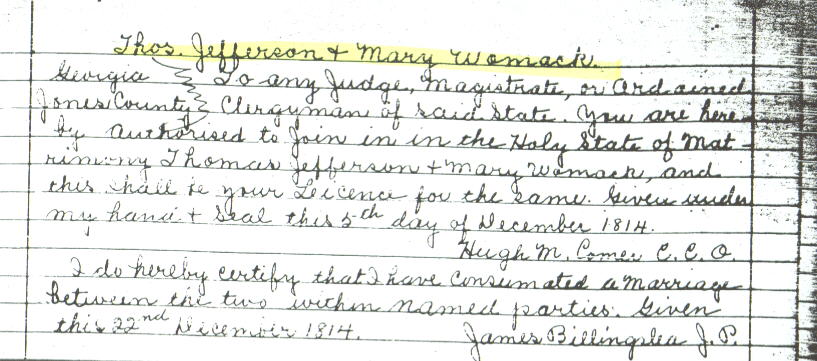 Thos. Jefferson + Mary Womack.
Georgia To any Judge, Magistrate, or Ordained
Jones County Clergyman of said State. You are here-
by authorised to Join in in the Holy State of Mat-
rimony Thomas Jefferson + Mary Womack, and
this shall be your Leicence for the same. Given under
my hand + Seal this 5th day of December 1814.
Hugh M. Comer C.C.O.
I do hereby certify that I have Consumated a Marriage
between the two within named parties. Given
this 22nd December 1814.
James Billingslea J.P.